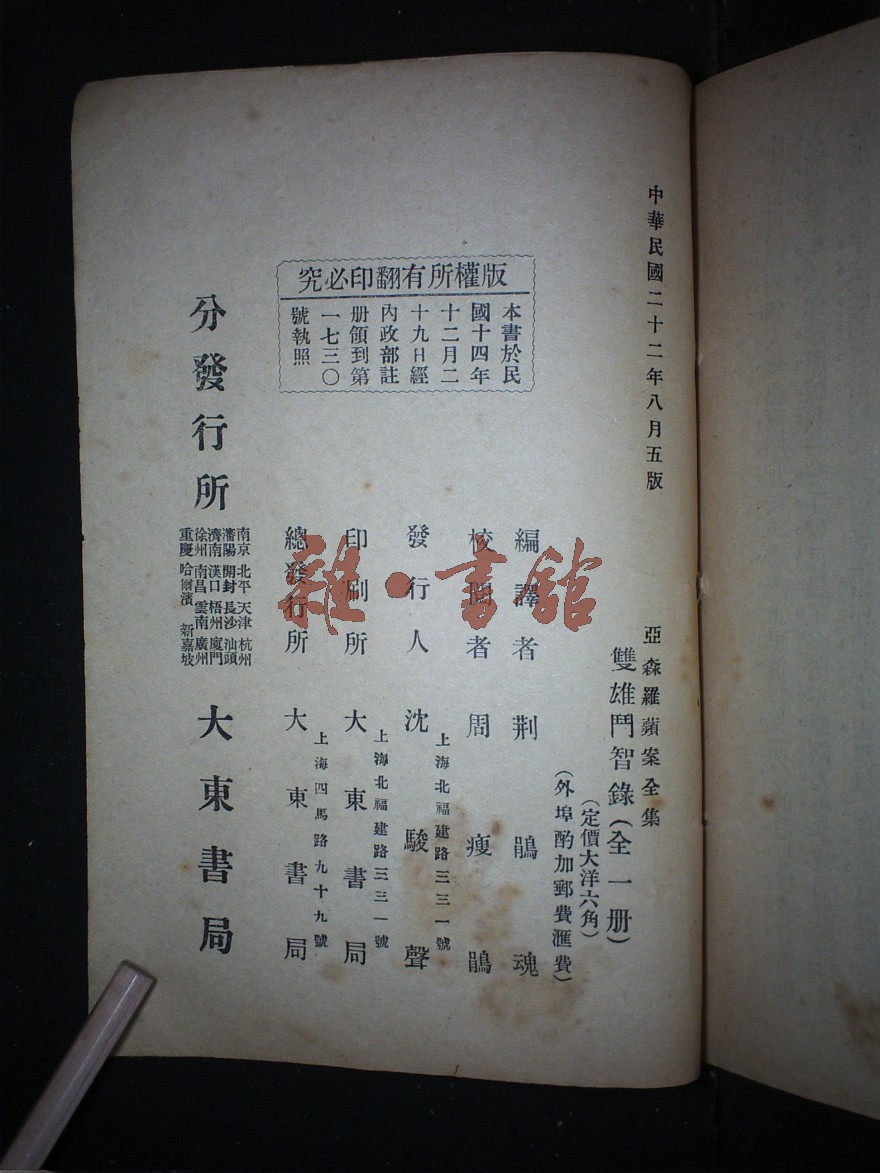 中華民國二十二年八月五版
亞森羅蘋案全集
雙雄鬥智錄(全一册)
(定價大洋六角)
(外埠酌加郵費匯費)
編譯者 荆鵑魂
校閱者 周瘦鵑
發行人 沈駿聲
上海北福建路三三一號
印刷所 大東書局
上海北福建路三三一號
總發行所 大東書局
上海四馬路九十九號
分發行所 大東書局
南京 北平 天津 杭州
瀋陽 開封 長沙 汕頭
濟南 漢口 梧州 廈門
徐州 南昌 雲南 廣州
重慶 哈爾濱 新嘉坡
版權所有翻印必究
本書於民
國十四年
十二月二
十九日經
內政部註
册領到第
一七三〇
號執照
雜·書館